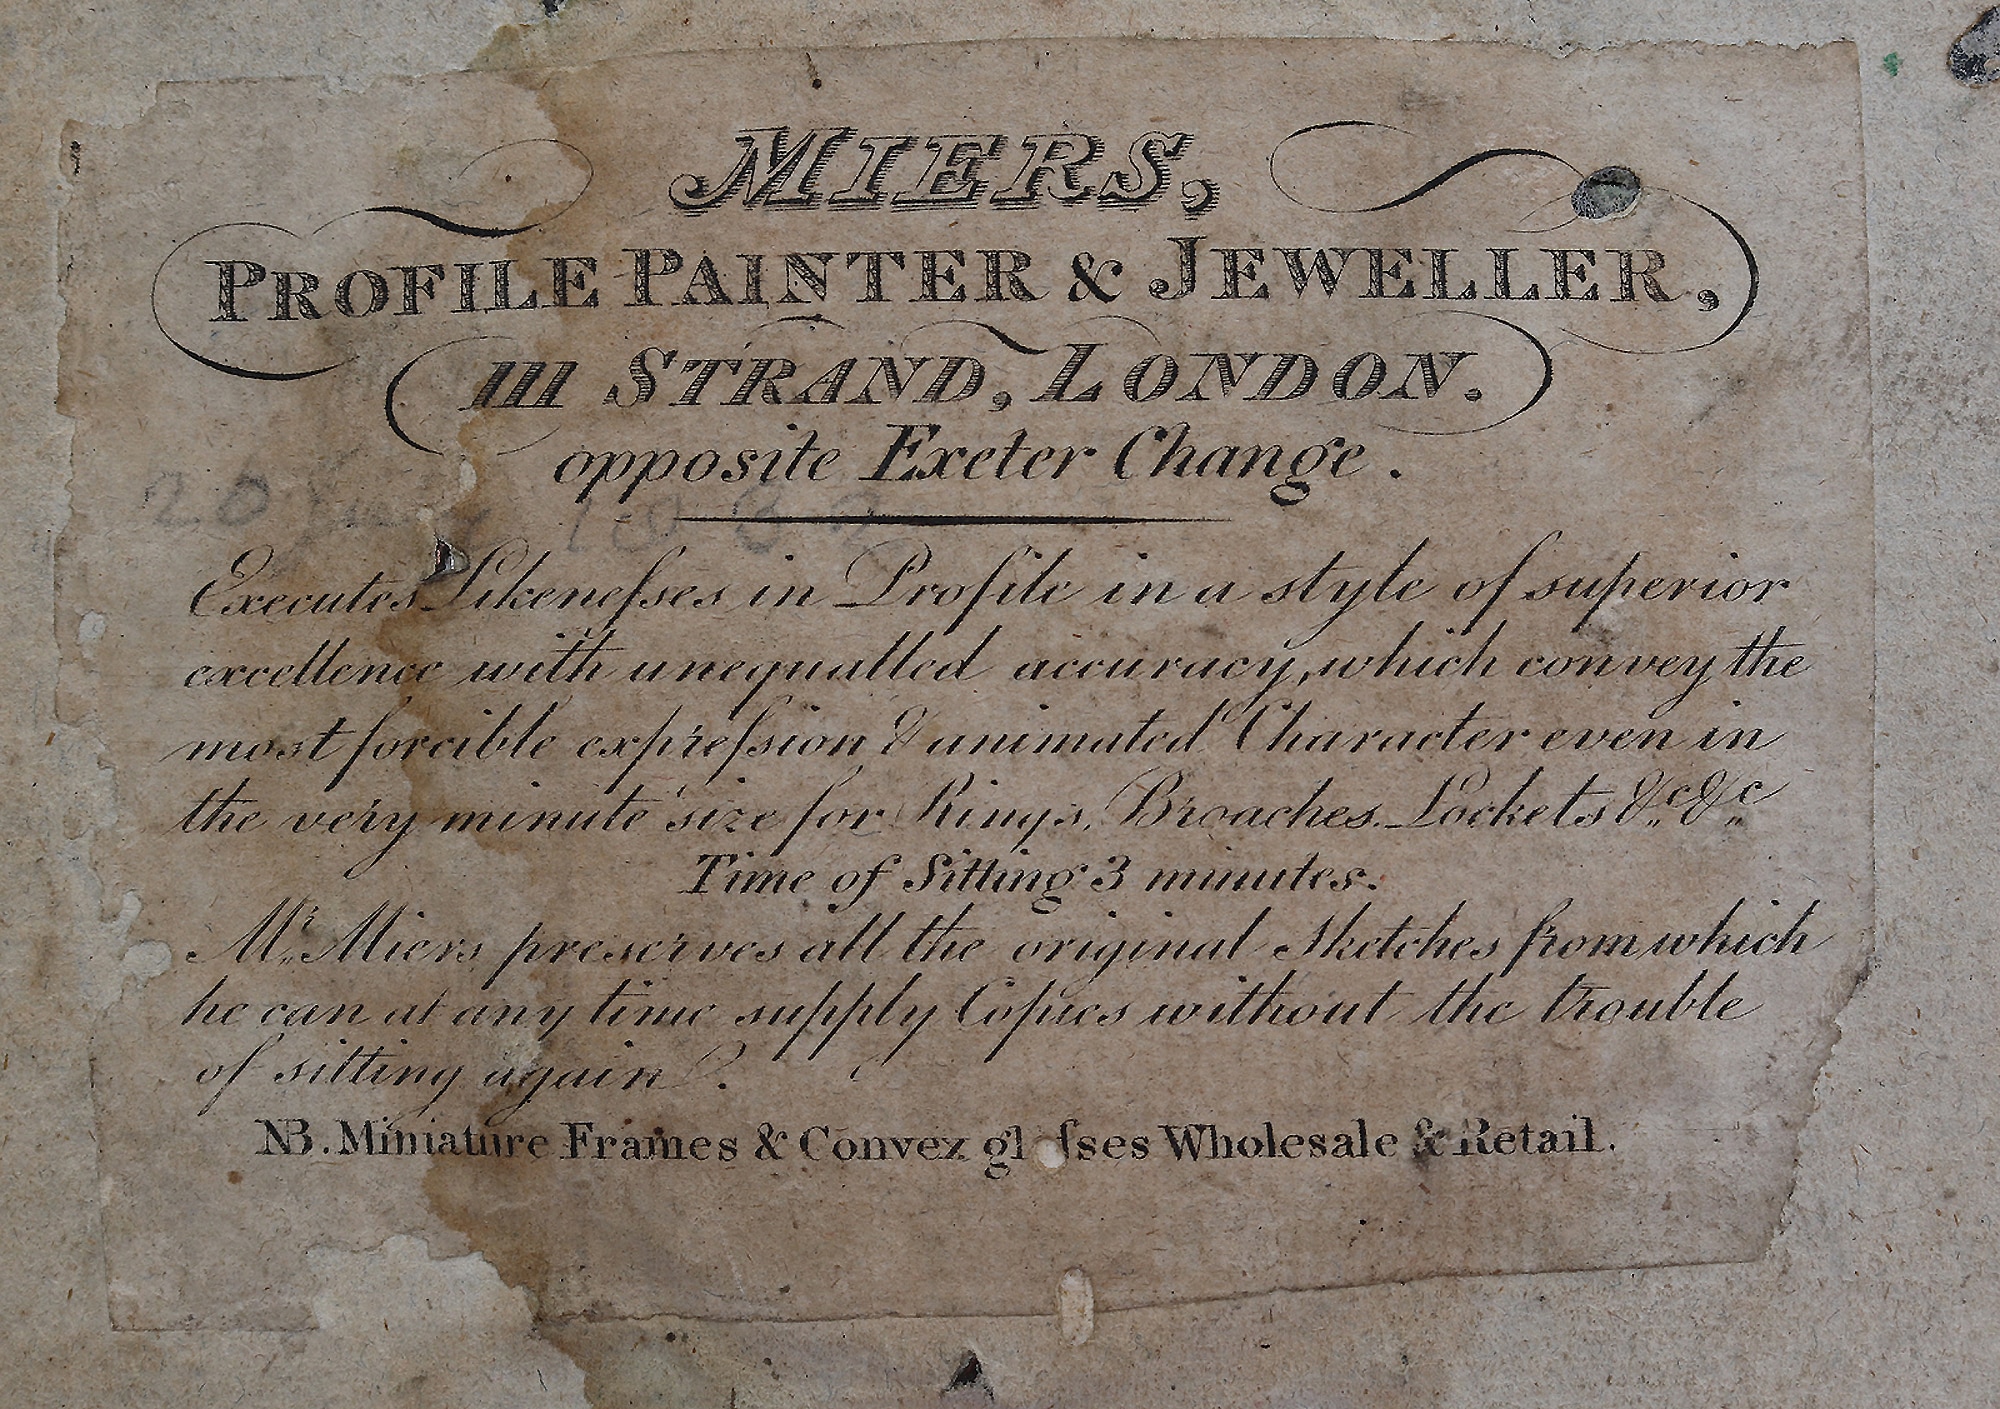 MIERS,
PROFILE PAINTER & JEWELLER,
111 STRAND, LONDON.
opposite Exeter Change.
Executes Likeneſses in Profile in a style of superior
excellence with unequalled accuracy, which convey the
most forcible expreſsion & animated Character even in
the very minute size for Rings, Broaches, Lockets &c &c
Time of Sitting 3 minutes.
Mr. Miers preserves all the original Sketches from which
he can at any time supply Copies without the trouble
of sitting again.
NB. Miniature Frames & Convex gl ſses Wholesale & Retail.
20